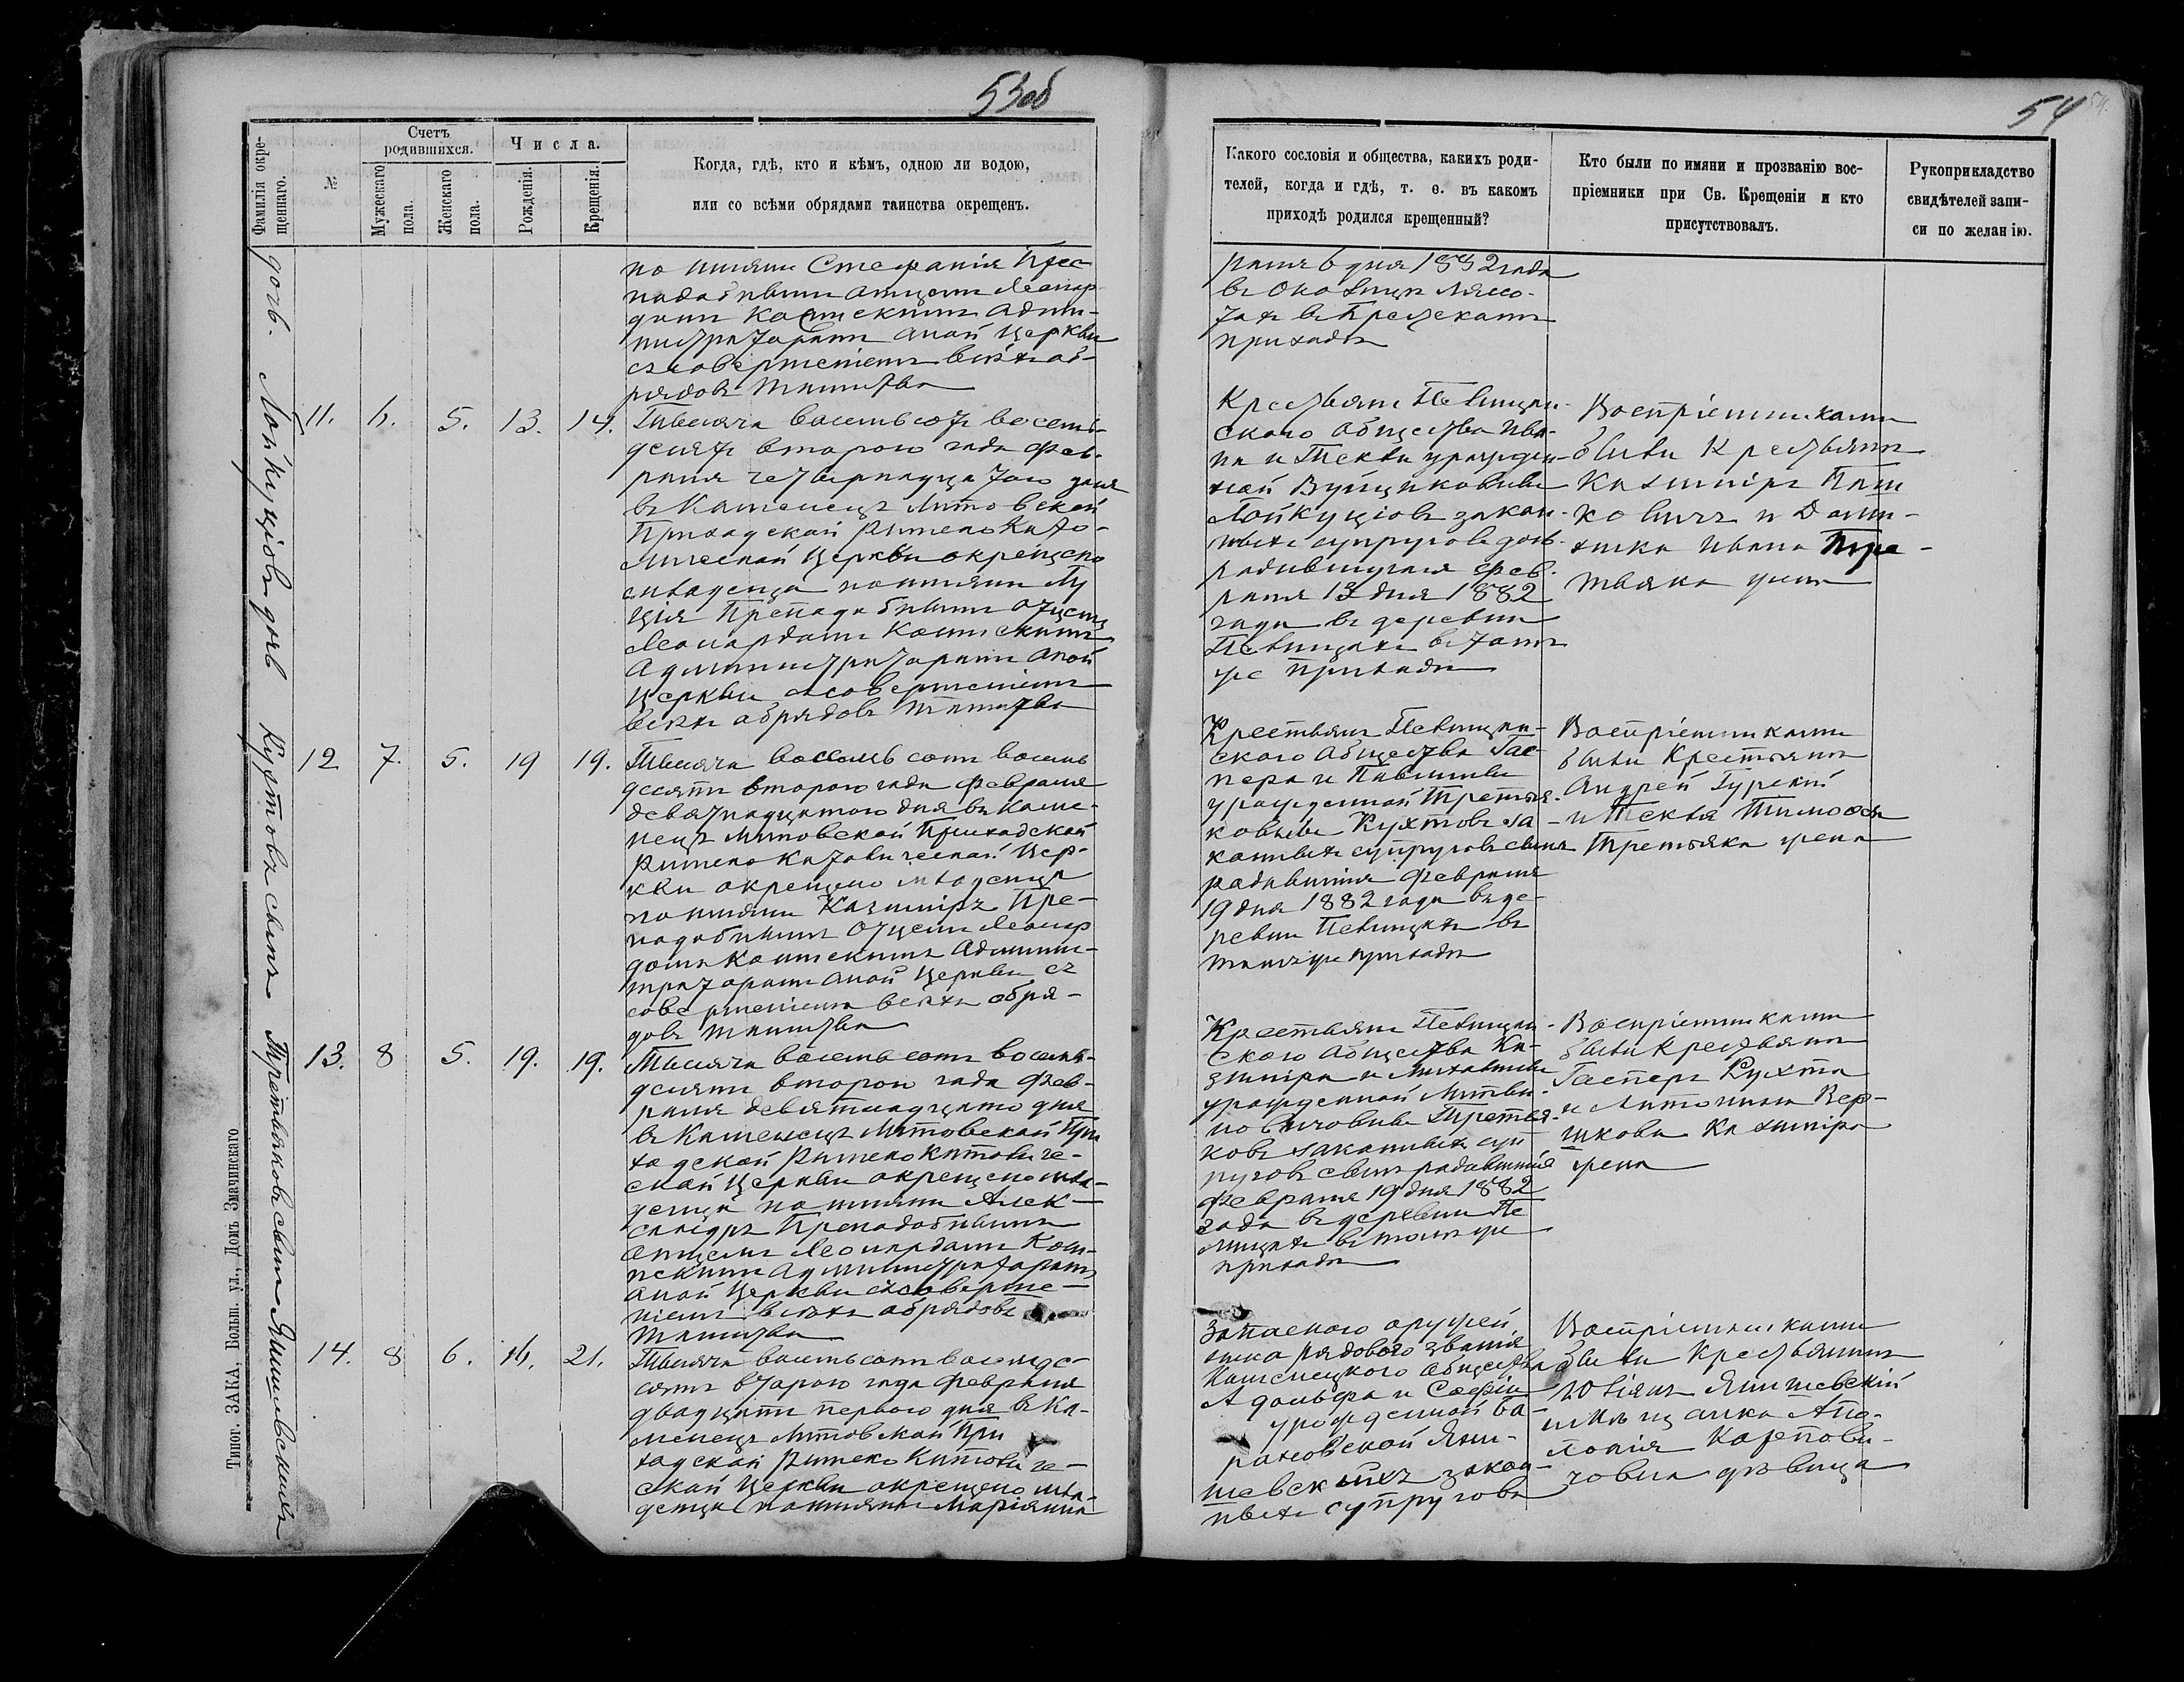 53об
Фамилія окрещеннаго.
№
Счетъ родившихся.
Мужескаго пола.
Женскаго пола.
Числа.
Рожденія.
Крещенія.
Когда, гдѣ, кто и кѣмъ, одною ли водою,
или со всѣми обрядами таинства окрещенъ.
дочь.
по имяни Стефанія Преподобнымъ
Администраторомъ оной Церкви
съ совершеніемъ всѣхъ об-
рядовъ Таинства
Лойкуціовъ дочь
11. 6. 5. 13. 14.
Тысяча восемьсотъ восемь-
десятъ втораго года Фев-
раля четырнадцатаго дня
въ Каменецъ Литовской
Приходской Римско Като-
лической Церкви окрещено
младенца по имяни Лу
ція Преподобнымъ Отцемъ
Леонардомъ
Администраторомъ оной
Церкви съ совершеніемъ
всѣхъ обрядовъ Таинства
Кухтовъ сынъ
12 7. 5. 19 19.
Тысяча восемь сотъ восемь
десятъ втораго года Февраля
девятнадцатого дня въ Каме-
нецъ Литовской Приходской
Римско Католической Цер-
кви окрещено младенца
по имяни Казиміръ Пре-
подобнымъ Отцемъ Леонар
домъ Админис-
траторомъ оной Церкви съ
совершеніемъ всѣхъ обря-
довъ Таинства
Третьяковъ сынъ
13. 8 5. 19. 19.
Тысяча восемь сотъ восемь-
десятъ второго года Фев-
раля девятнадцато дня
въ Каменецъ Литовской При
ходской Римско Католиче-
ской Церкви окрещено мла-
денца по имяни Алек-
сандръ Преподобнымъ
Отцемъ Леонардомъ
Администраторомъ
оной Церкви съ соверше-
ніемъ всѣхъ обрядовъ
Таинства
14. 8 6. 16. 21.
Тысяча восемь сотъ восемьде-
сятъ втораго года Февраля
двадцать перваго дня въ Ка-
менецъ Литовской При
ходской Римско Католиче-
ской Церкви окрещено мла-
денца по имяни Маріянна
Типог. ЗАКА, Больш. ул., Домъ Змачинскаго
54
54.
Какого сословія и общества, какихъ роди-
телей, когда и гдѣ, т. е. въ какомъ
приходѣ родился крещенный?
Кто были по имяни и прозванію вос-
пріемники при Св. Крещеніи и кто
присутствовалъ.
Рукоприкладство
свидѣтелей запи-
си по желанію.
раля 6 дня 1882 года
приходѣ
Крестьянъ Пелищан-
скаго общества Ива-
на и Теклы урожден-
ной
Лойкуціовъ закон-
ныхъ супруговъ дочь
родившуюся Фев-
раля 13 дня 1882
года въ деревни
Пелищахъ въ томъ
же приходѣ
Воспріемниками
были Крестьяне
Казиміръ
и Доми-
ника Ивана Тре-
тьяка жена
Крестьянъ Пелищан-
скаго общества Гас-
пера и Павлины
урожденной Третья-
ковны Кухтовъ за-
конныхъ супруговъ сына
родившія Февраля
19 дня 1882 года въ де-
ревни Пелищахъ въ
томъ же приходѣ
Воспріемниками
были Крестьяне
Андрей Гурскій
и Текля Тимофея
Третьяка жена
Крестьянъ Пелищан-
скаго общества Ка-
зиміра и Михалины
урожденной Литви-
новичовны Третья-
ковъ законныхъ суп
руговъ сына родившійся
Февраля 19 дня 1882
года въ деревни Пе
лищахъ въ томъ же
приходѣ
Воспріемниками
были Крестьяне
Гасперъ Кухта
и Антонина Вер-
шкова Казиміра
жена
Запаснаго оружей
ника рядового званія
Каменецкого общества
Адольфа и Софіи
урожденной Ба-
рановской Яни-
шевскихъ закон-
ныхъ супруговъ
Воспріемниками
были Крестьянинъ
Юліянъ Янишевскій
и мѣщанка Апо-
лонія Карпови-
човна дѣвица